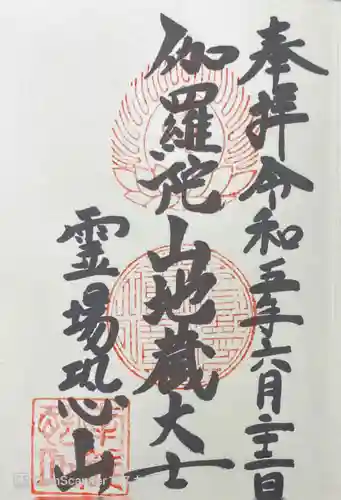 奉拝 令和五年六月二十二日
伽羅陀山地蔵大士
霊場恐山